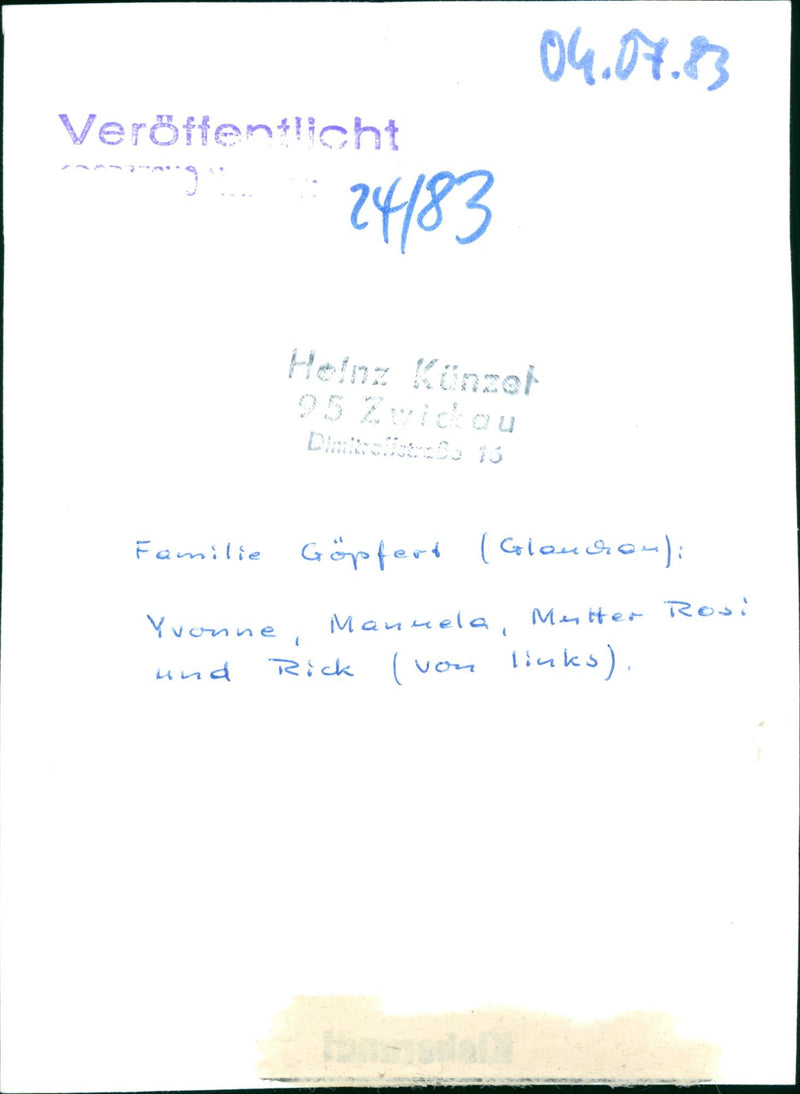 04.07.83
Veröffentlicht
24/83
Heinz Künzel
95 Zwickau
Dimitroffstraße 16
Familie Göpfert (Glauchau):
Yvonne, Manuela, Mutter Rosi
und Rick (von links).
Kleberand!